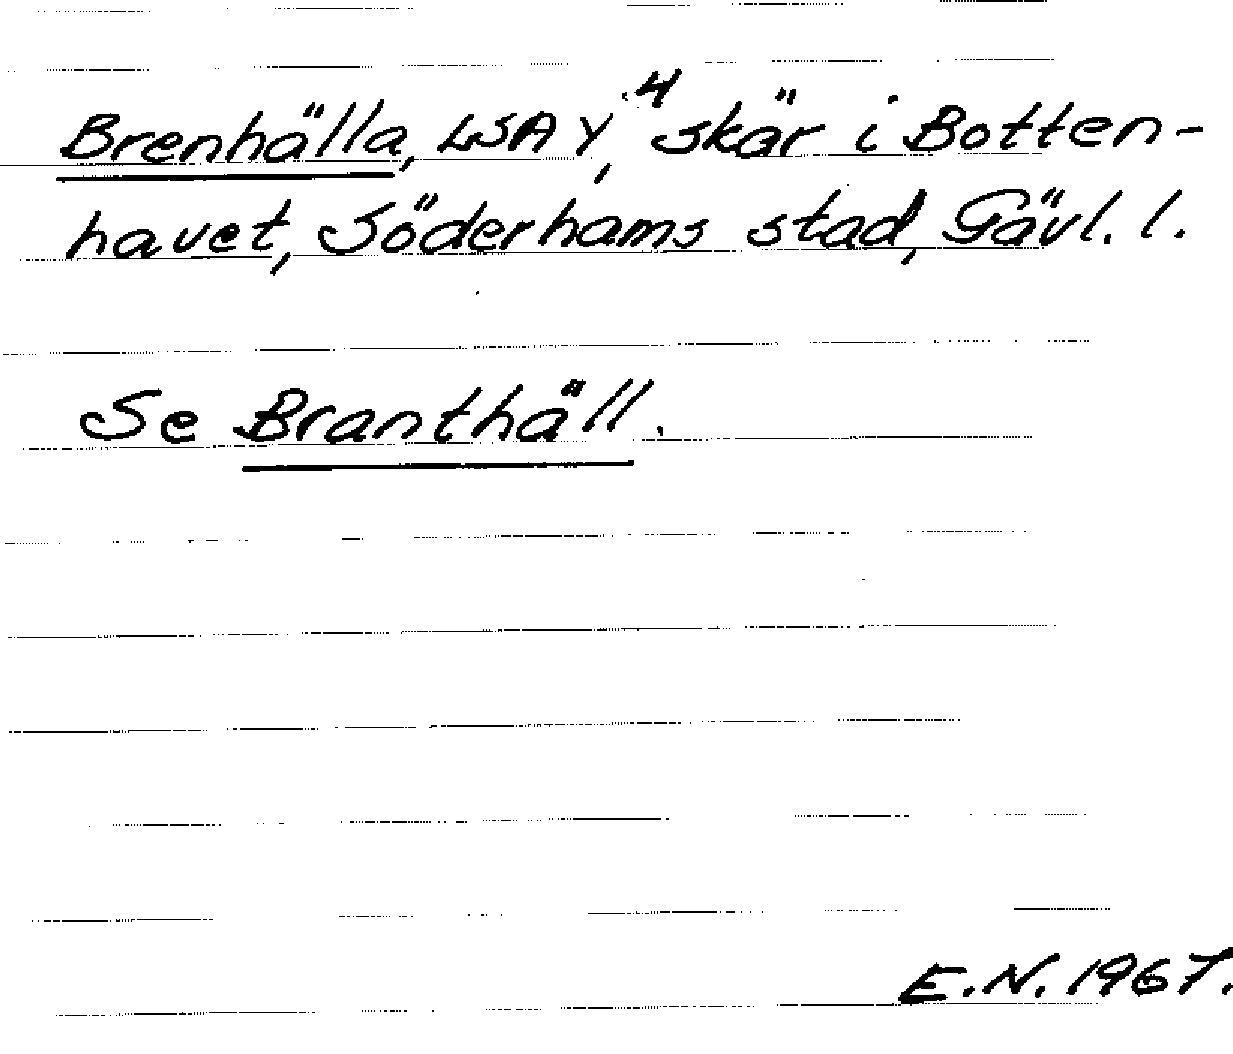 Brenhälla, LSA Y,⁴ skär i Botten-
havet, Söderhams stad, Gävl. l.
Se Branthäll.
E.N. 1967.